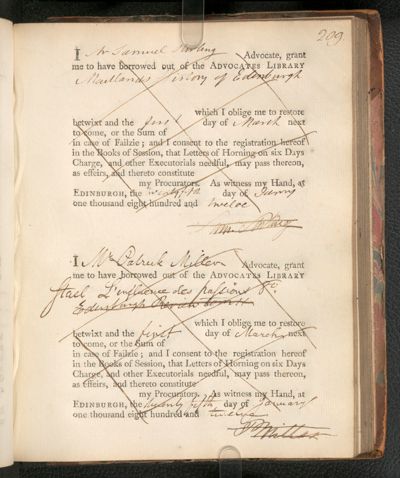 209
I Mr Samuel Starling Advocate, grant
me to have borrowed out of the ADVOCATES LIBRARY
Maitlands History of Edinburgh
which I oblige me to restore
betwixt and the first day of March next
to come, or the Sum of
in case of Failzie; and I consent to the registration hereof
in the Books of Session, that Letters of Horning on six Days
Charge, and other Executorials needful, may pass thereon,
as effeirs, and thereto constitute
my Procurators. As witness my Hand, at
EDINBURGH, the twenty fifth day of
one thousand eight hundred and twelve
I Mr Patrick Miller Advocate, grant
me to have borrowed out of the ADVOCATES LIBRARY
Stael L'influence des passions 8o
Edinburgh
which I oblige me to restore
betwixt and the first day of March next
to come, or the Sum of
in case of Failzie; and I consent to the registration hereof
in the Books of Session, that Letters of Horning on six Days
Charge, and other Executorials needful, may pass thereon,
as effeirs, and thereto constitute
my Procurators. As witness my Hand, at
EDINBURGH, the twenty fifth day of January
one thousand eight hundred and twelve
P Miller